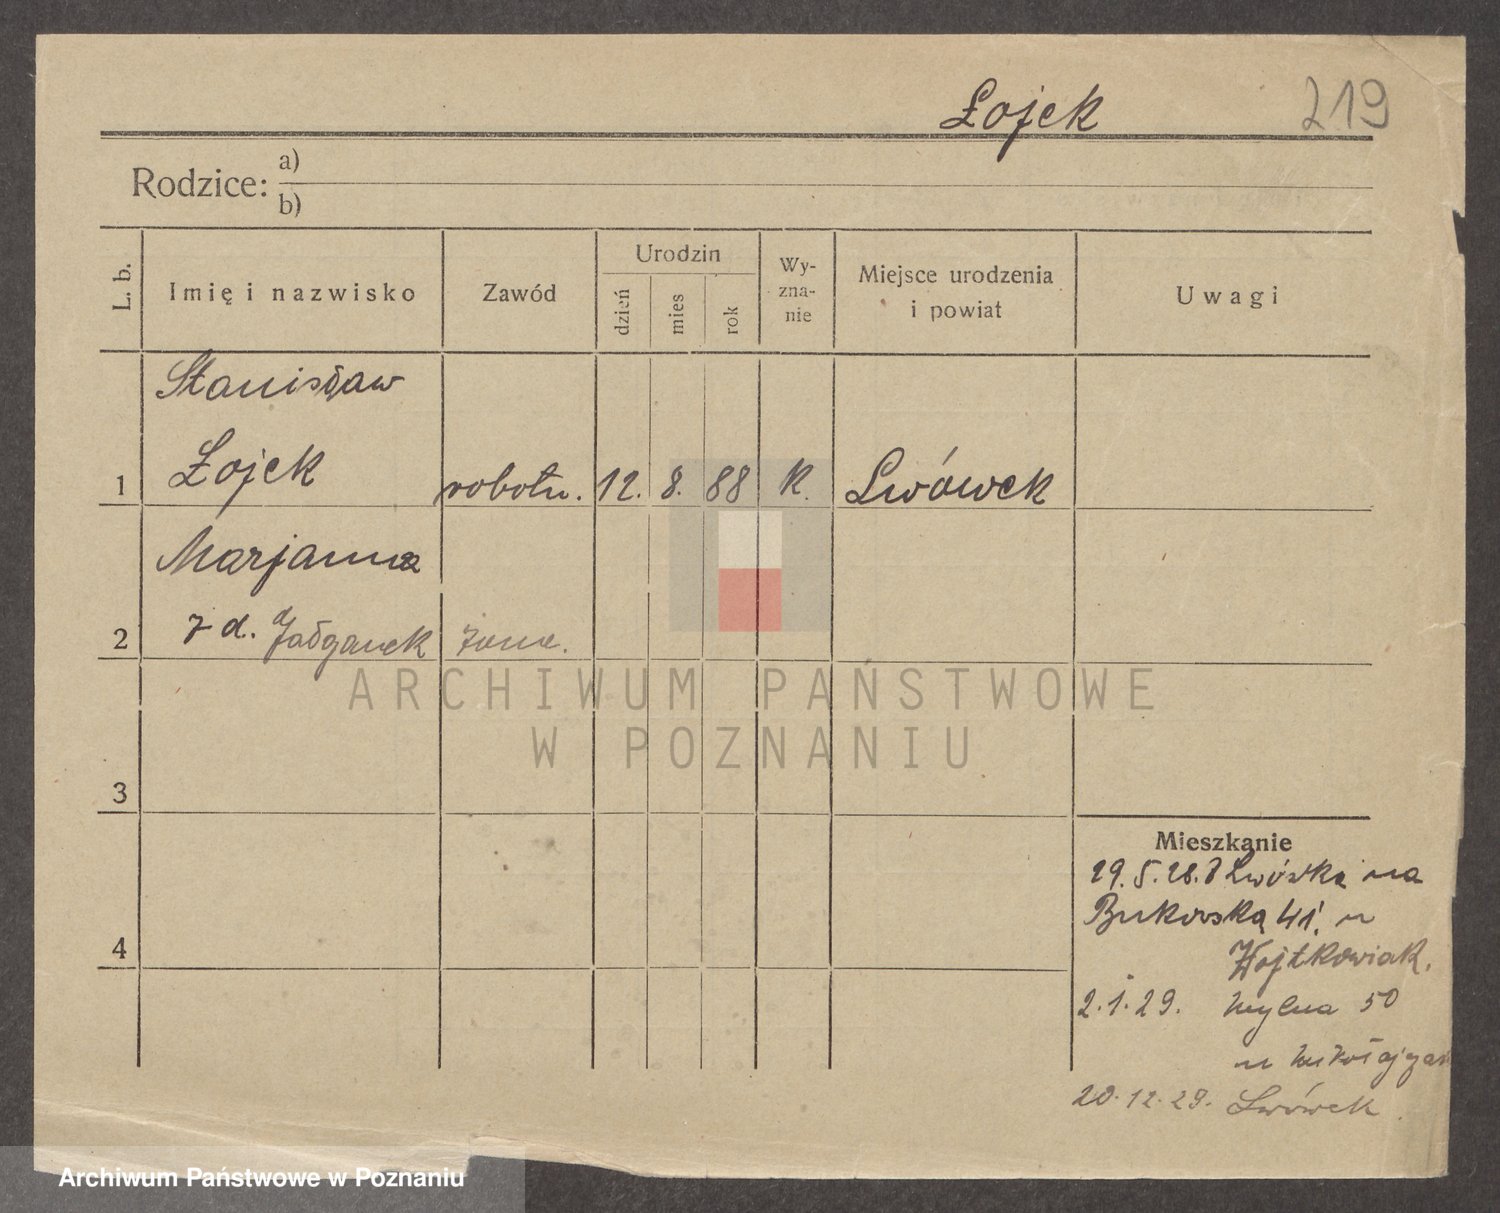 Łojek 219
Rodzice: a)
b)
L. b.
Imię i nazwisko
Zawód
Urodzin
dzień
mies
rok
Wy-
zna-
nie
Miejsce urodzenia
i powiat
Uwagi
Stanisław
1 Łojek robotn. 12. 8. 88 k. Lwówek
Marjanna
2 z d. żona.
3
4
Mieszkanie
29. 5. 28. z Lwówka na
Bukowską 41. u
Wojtkowiak.
2. 1. 29. Mylna 50
u
20. 12. 29. Lwówek
ARCHIWUM PAŃSTWOWE
W POZNANIU
Archiwum Państwowe w Poznaniu